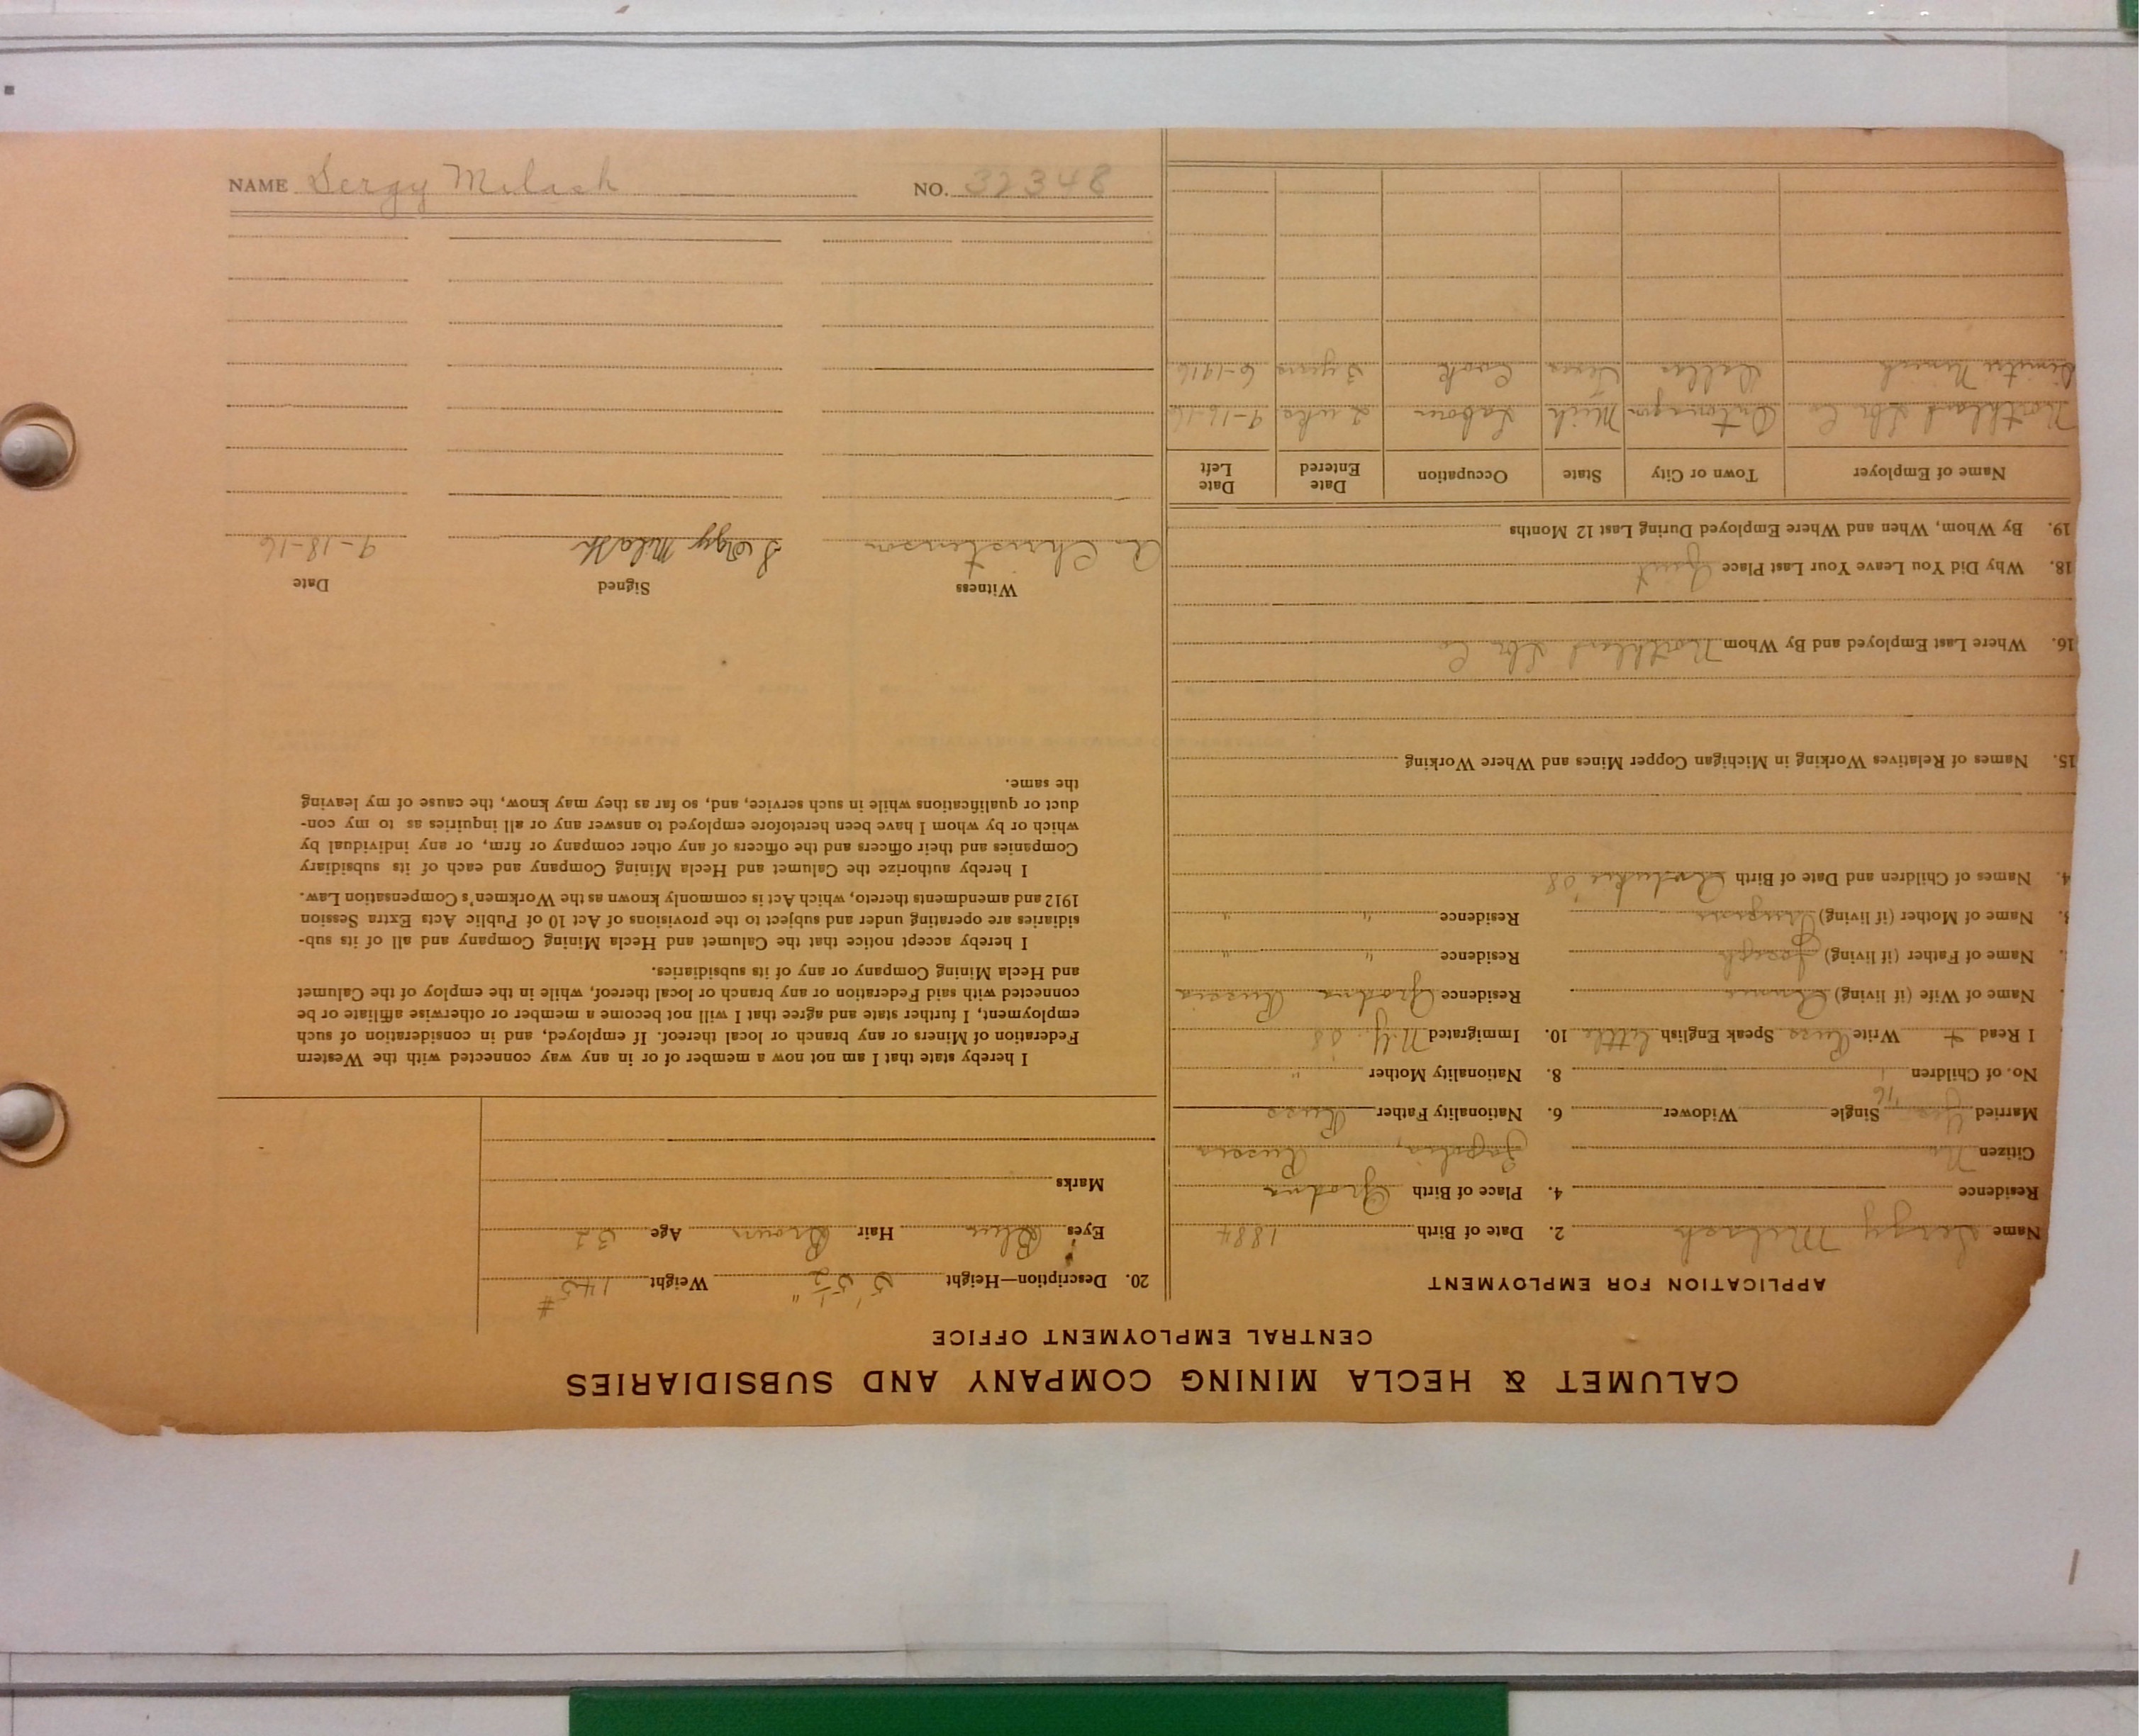 CALUMET & HECLA MINING COMPANY AND SUBSIDIARIES
CENTRAL EMPLOYMENT OFFICE
APPLICATION FOR EMPLOYMENT
Name Sergy Milach 2. Date of Birth 1884
Residence 4. Place of Birth Grodna
Citizen No Russia
Married Yes '16 Single Widower 6. Nationality Father Russ
No. of Children 1 8. Nationality Mother "
I Read + Write Russ Speak English little 10. Immigrated N.Y. '08
Name of Wife (if living) Annie Residence Grodna Russia
Name of Father (if living) Joseph Residence " "
Name of Mother (if living) Residence " "
4. Names of Children and Date of Birth '08
15. Names of Relatives Working in Michigan Copper Mines and Where Working
16. Where Last Employed and By Whom Northland Lbr Co
18. Why Did You Leave Your Last Place Quit
19. By Whom, When and Where Employed During Last 12 Months
Name of Employer Town or City State Occupation Date Entered Date Left
Northland Lbr Co Ontonagon Mich Laborer 2 wks 9-16-16
Dallas Texas Cook 3 yrs 6-1916
20. Description—Height 5' 5 1/2" Weight 145 #
Eyes Blue Hair Brown Age 32
Marks
I hereby state that I am not now a member of or in any way connected with the Western
Federation of Miners or any branch or local thereof. If employed, and in consideration of such
employment, I further state and agree that I will not become a member or otherwise affiliate or be
connected with said Federation or any branch or local thereof, while in the employ of the Calumet
and Hecla Mining Company or any of its subsidiaries.
I hereby accept notice that the Calumet and Hecla Mining Company and all of its sub-
sidiaries are operating under and subject to the provisions of Act 10 of Public Acts Extra Session
1912 and amendments thereto, which Act is commonly known as the Workmen's Compensation Law.
I hereby authorize the Calumet and Hecla Mining Company and each of its subsidiary
Companies and their officers and the officers of any other company or firm, or any individual by
which or by whom I have been heretofore employed to answer any or all inquiries as to my con-
duct or qualifications while in such service, and, so far as they may know, the cause of my leaving
the same.
Witness Signed Date
A. Christenson Sergy Milash 9-18-16
NAME Sergy Milach NO. 32348